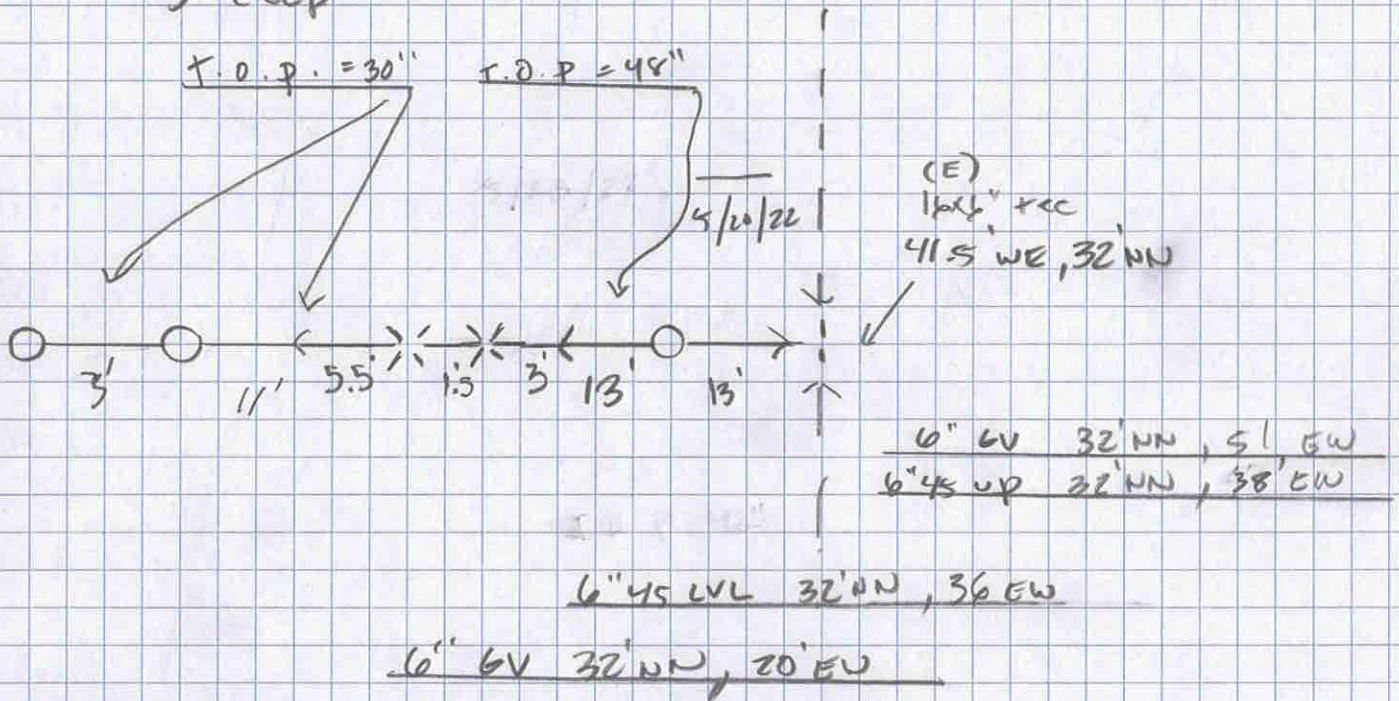 T.O.P. = 30" T.O.P = 48"
5/20/22
(E)
16x6" tee
41.5' WE, 32' NN
3' 11' 5.5' 1.5' 3' 13' 13'
6" GV 32' NN, 51' EW
6" 45 up 32' NN, 38' EW
6" 45 LVL 32' NN, 36 EW
6" GV 32' NN, 20' EW